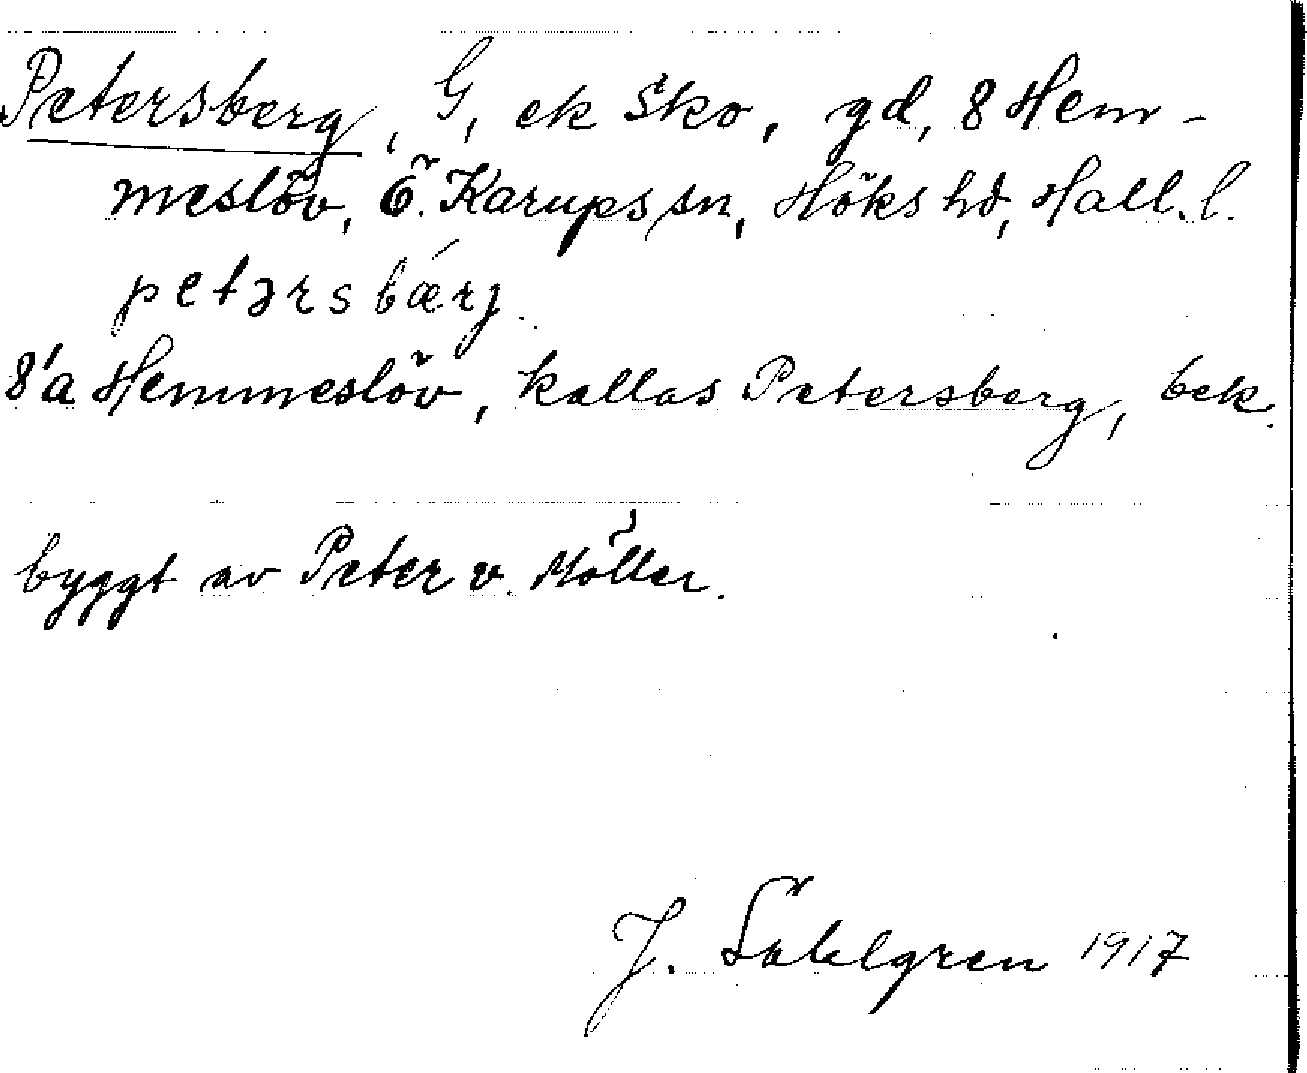 Petersberg, G, ek Sko, gd, 8 Hem-
meslöv, Ö. Karups sn, Höks hd, Hall. l.
petərsbærj.
8'a Hemmeslöv, kallas Petersberg, bek.
byggt av Peter v. Möller.
J. Sahlgren 1917